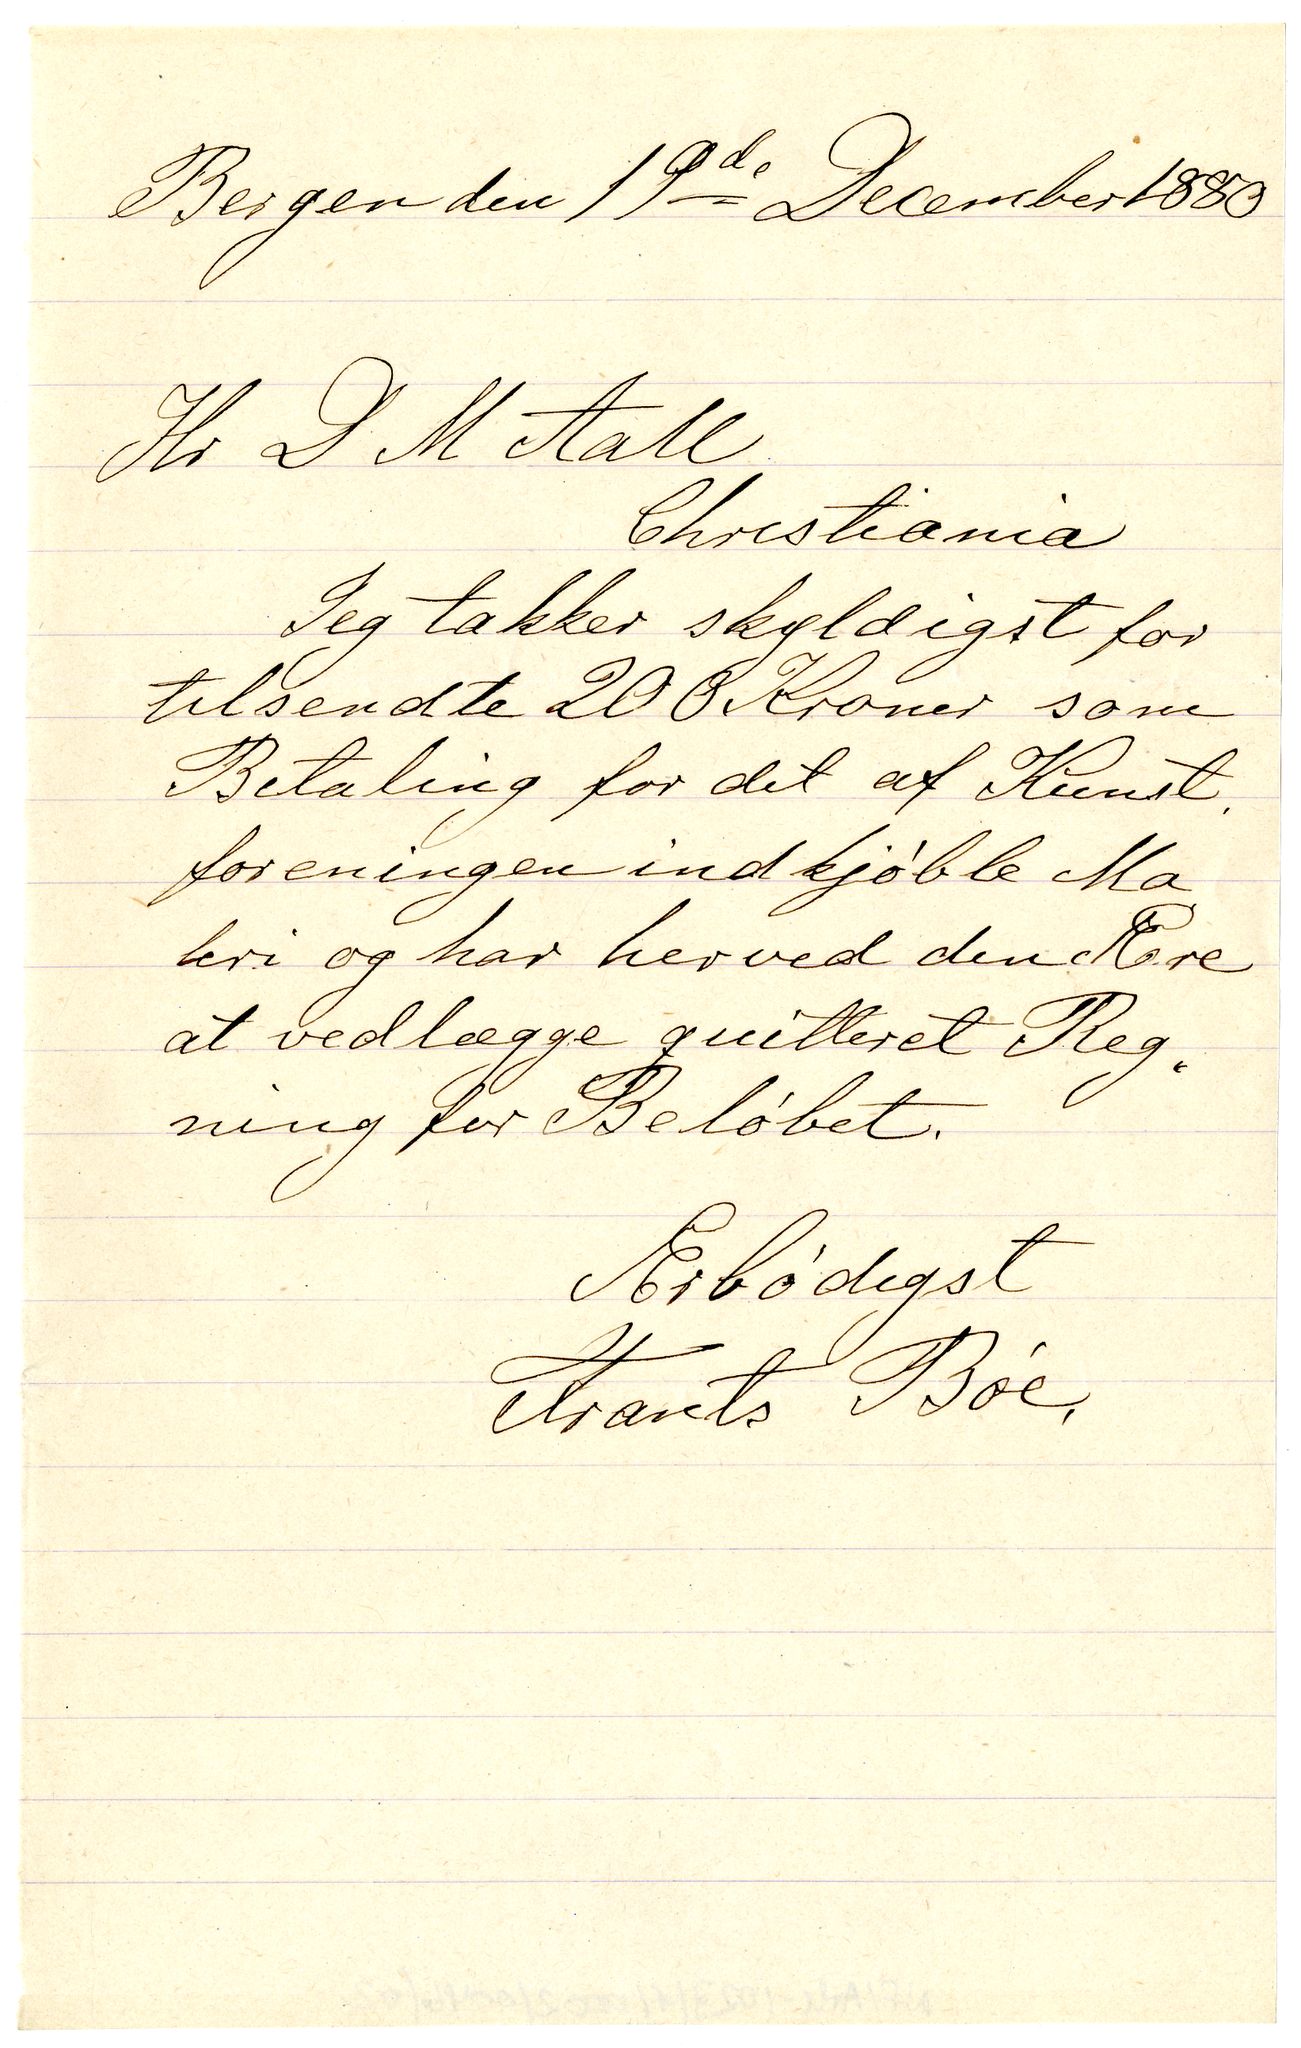 Bergen den 19de December 1880
Hr D M Aall
Christiania
Jeg takker skyldigst for
tilsendte 200 Kroner som
Betaling for det af Kunst,
foreningen indkjöbte Ma
leri og har herved den Ære
at vedlægge quitteret Reg„
ning for Belöbet.
Ærbödigst
Frants Böe,